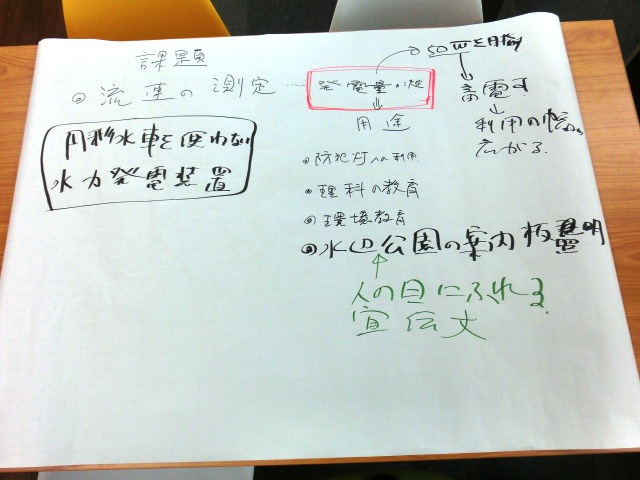 課題
◎流速の測定
円形水車を使わない
水力発電装置
発電量
用途
・防犯灯への利用
・理科の教育
◎環境教育
◎水辺公園の案内板照明
人の目にふれる
宣伝大
50Wを目指
蓄電す
利用の幅が
広がる